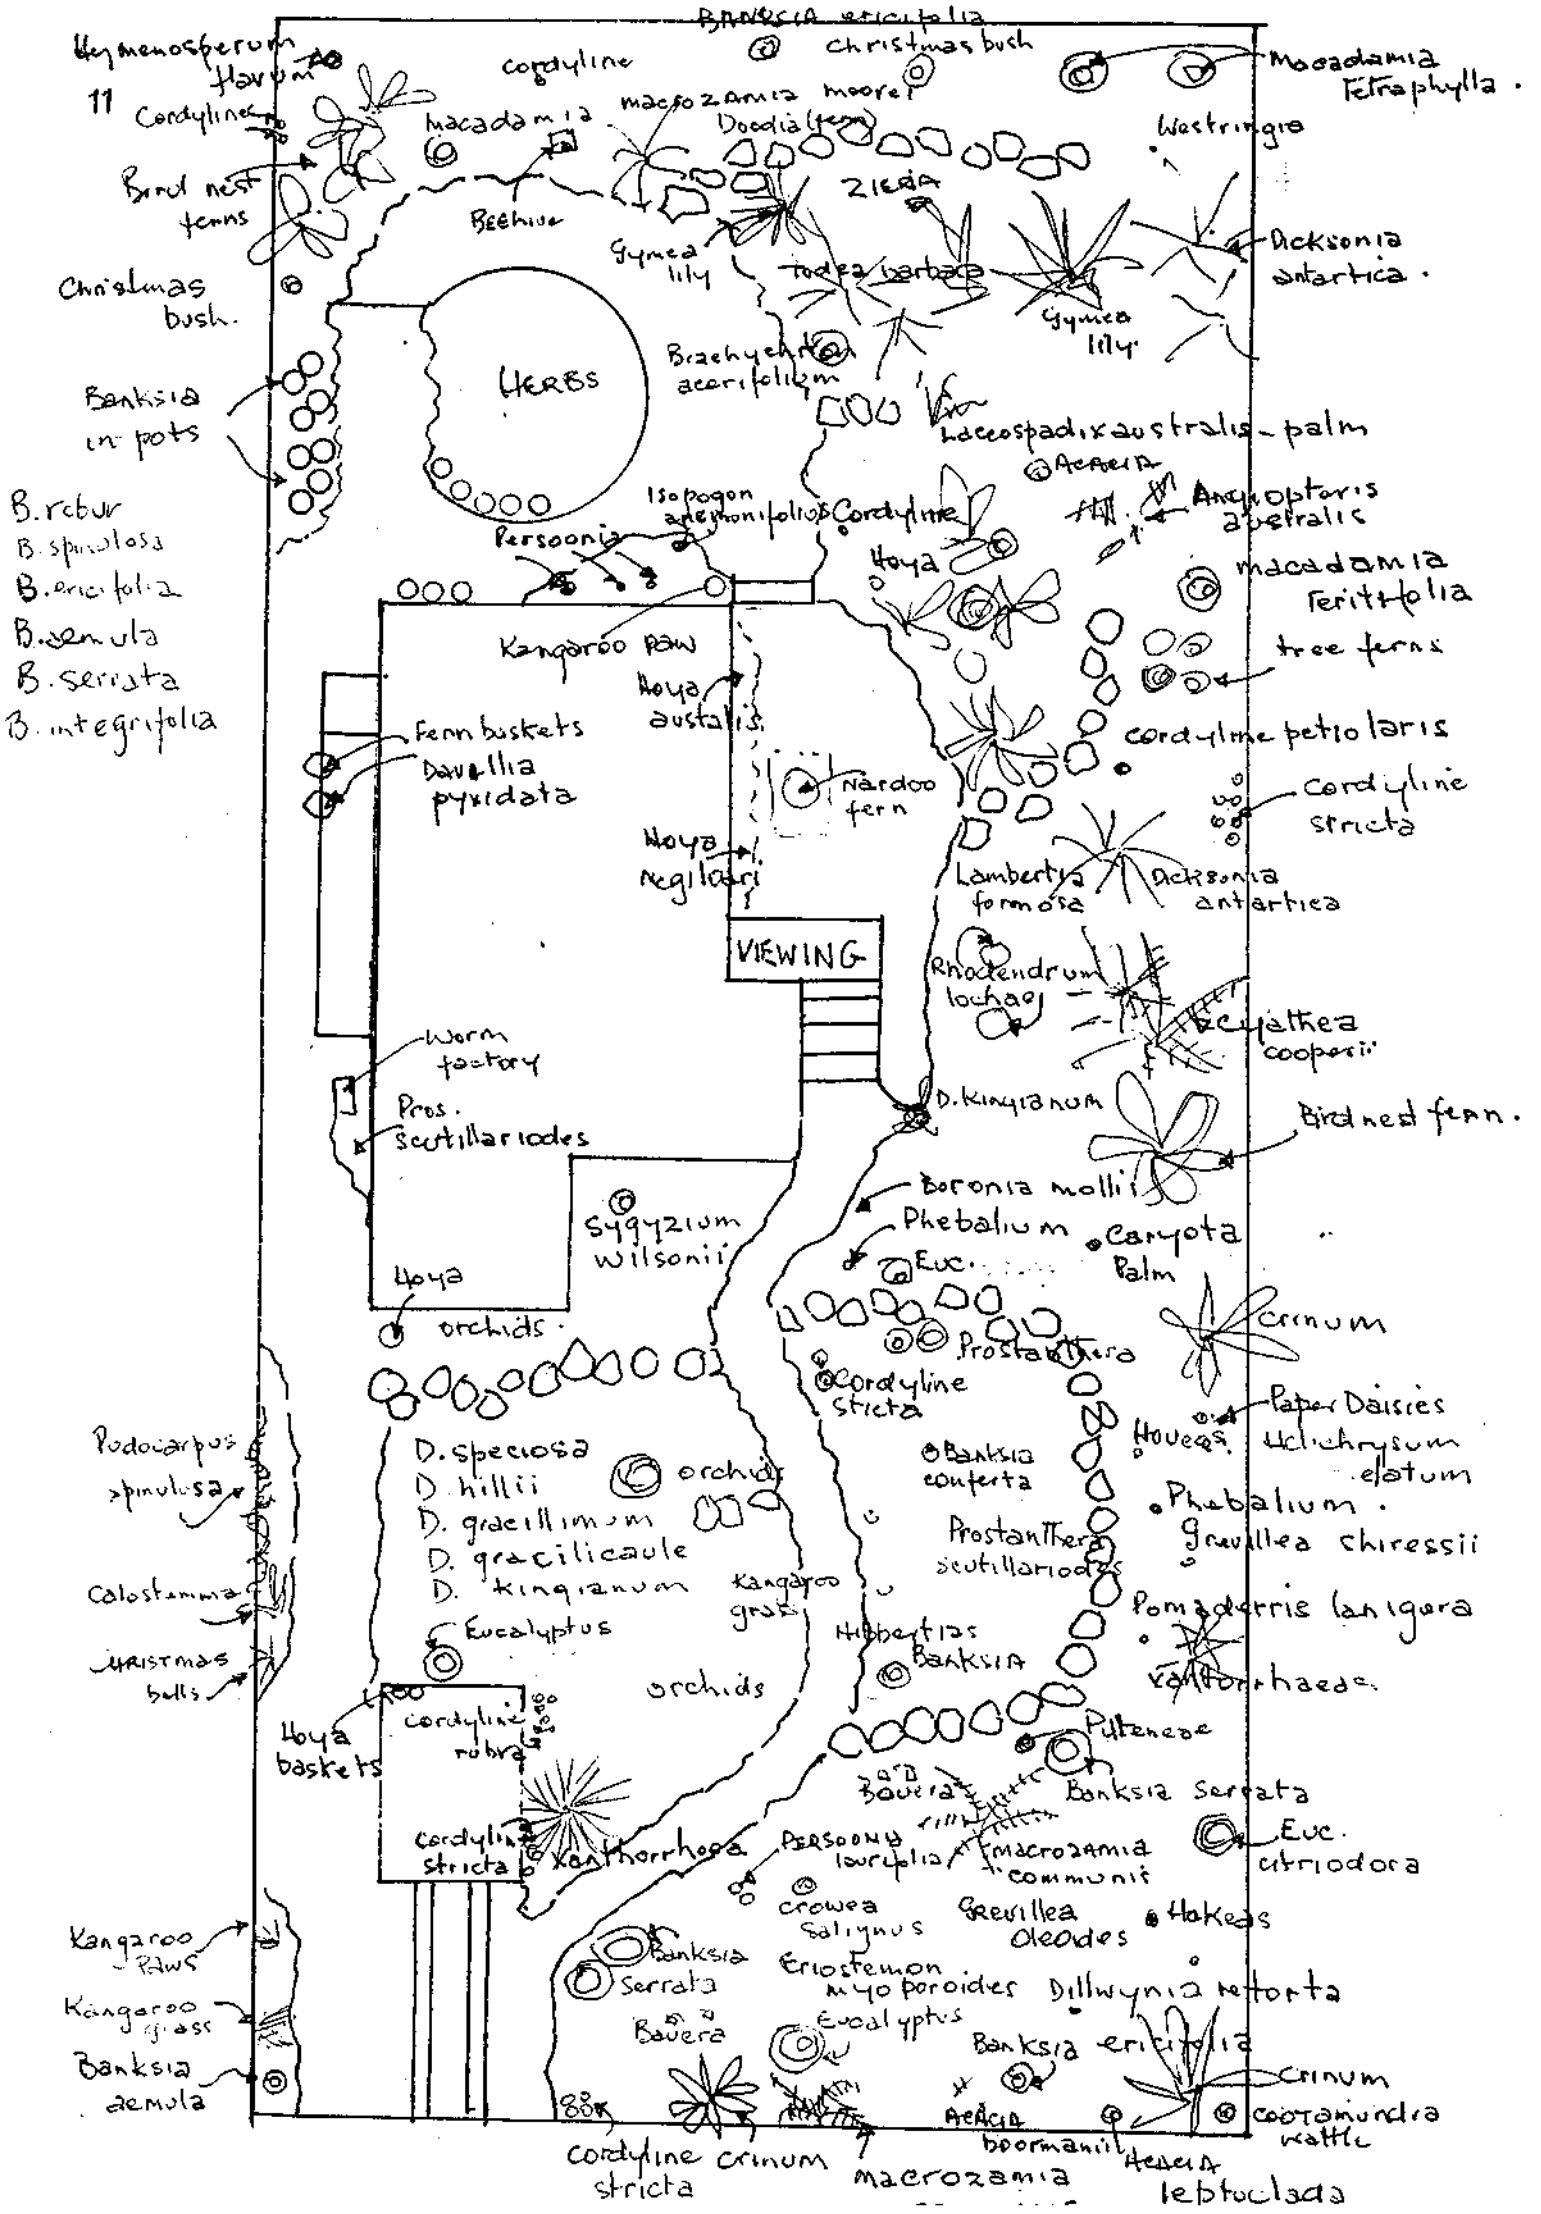 BANKSIA ericifolia
Hymenosperum
flavum
11
Cordylines
Cordyline
Christmas bush
Macadamia
Tetraphylla.
macadamia
macrozamia moorei
Doodia (fern)
Westringia
Bird nest
ferns
BEEhive
ZIERIA
Gymea
lily
Todea barbara
Dicksonia
antartica.
Gymea
lily.
Christmas
bush.
HERBS
Brachychiton
acerifolium
Banksia
in pots
Laccospadix australis - palm
ACACIA
Angiopteris
australis
B. robur
B. spinulosa
B. ericifolia
B. aemula
B. serrata
B. integrifolia
Isopogon
anemonifolius
Cordyline
Persoonia
Hoya
macadamia
Kangaroo paw
tree ferns
Hoya
austalis
Fern buskets
Davillia
pyxidata
Nardoo
fern
Cordyline petiolaris
Cordyline
stricta
Hoya
Lambertia
formosa
Dicksonia
antartica
VIEWING
Rhodendrum
lochaei
Cyathea
cooperii
Worm
factory
Pros.
scutillariodes
D. Kingianum
Bird nest fern.
Boronia mollis
Phebalium
Caryota
Palm
Euc.
Sygyzium
wilsonii
Hoya
orchids.
Crinum
Prostanthera
Cordyline
Stricta
Paper Daisies
Hoveas.
Helichrysum
elatum
Podocarpus
spinulosa
D. speciosa
D. hillii
D. gracillimum
D. gracilicaule
D. kingianum
orchids
Banksia
conferta
Phebalium.
Grevillea shiressii
Prostanthera
scutillariodes
Calostemma
Kangaroo
grass
Pomaderris lanigera
Eucalyptus
Hibbertias
Banksia
Christmas
bells
orchids
Xantorrhaeae.
Hoya
baskets
cordyline
rubra
Pulteneae
Bauera
Banksia Serrata
cordyline
stricta
Xanthorrhoea
PERSOONIA
laurifolia
macrozamia
communis
Euc.
citriodora
Crowea
Salignus
Grevillea
Oleoides
Hakeas
Kangaroo
Paws
Banksia
Serrata
Eriostemon
myoporoides
Dillwynia retorta
Kangaroo
grass
Bauera
Eucalyptus
Banksia ericifolia
Banksia
aemula
Crinum
Cootamundra
wattle
Acacia
boormanii
Cordyline
stricta
crinum
macrozamia
Acacia
leptoclada